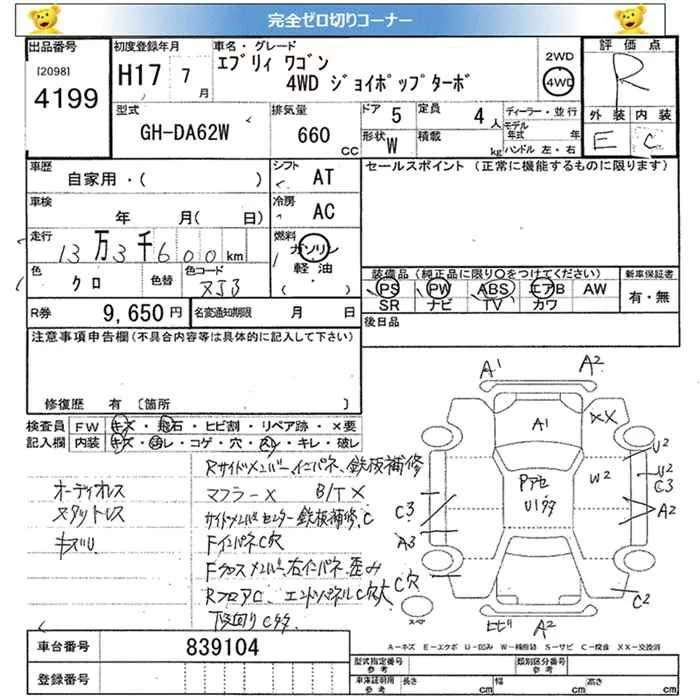 完全ゼロ切りコーナー
出品番号
[2098]
4199
初度登録年月
H17 7月
車名・グレード
エブリィ ワゴン
4WD ジョイポップターボ
2WD
4WD
評価点
R
外装 内装
E C
型式
GH-DA62W
排気量
660 CC
ドア 5
形状 W
定員 4人
積載 kg
ディーラー・並行
モデル年式 年
ハンドル 左・右
車歴
自家用・( )
シフト AT
セールスポイント (正常に機能するものに限ります)
車検
年 月( 日)
冷房 AC
走行
13万3千600km
燃料
ガソリン
軽油
( ・ )
色
クロ
色替
色コード
ZJ3
装備品(純正品に限り○をつけてください)
PS PW ABS エアB AW
SR ナビ TV カワ
新車保証書
有・無
R券 9,650円
名変通知期限 月 日
後日品
注意事項申告欄(不具合内容等は具体的に記入して下さい)
修復歴 有 〔箇所 〕
検査員記入欄
FW キズ・飛石・ヒビ割・リペア跡・×要
内装 キズ・汚レ・コゲ・穴・スレ・キレ・破レ
オーディオレス
スタットレス
キズU
Rサイドメンバー、インパネ、鉄板補修
マフラーX B/TX
サイドメンバセンター鉄板補修、C
FインパネC穴
Fクロスメンバ、右インパネ歪み
RフロアC、エンドパネルC穴大
下廻りC多々
A1
A2
A1
XX
U2
W2
U2
C3
A2
Pアセ
U1多々
C3
A3
C穴
C2
スペア
ヒビ
A2
A-キズ E-エクボ U-凹み W-補修跡 S-サビ C-腐食 XX-交換済
車台番号 839104
登録番号
型式指定番号 参考
類別区分番号 参考
車庫証明用 参考 長さ cm 幅 cm 高さ cm